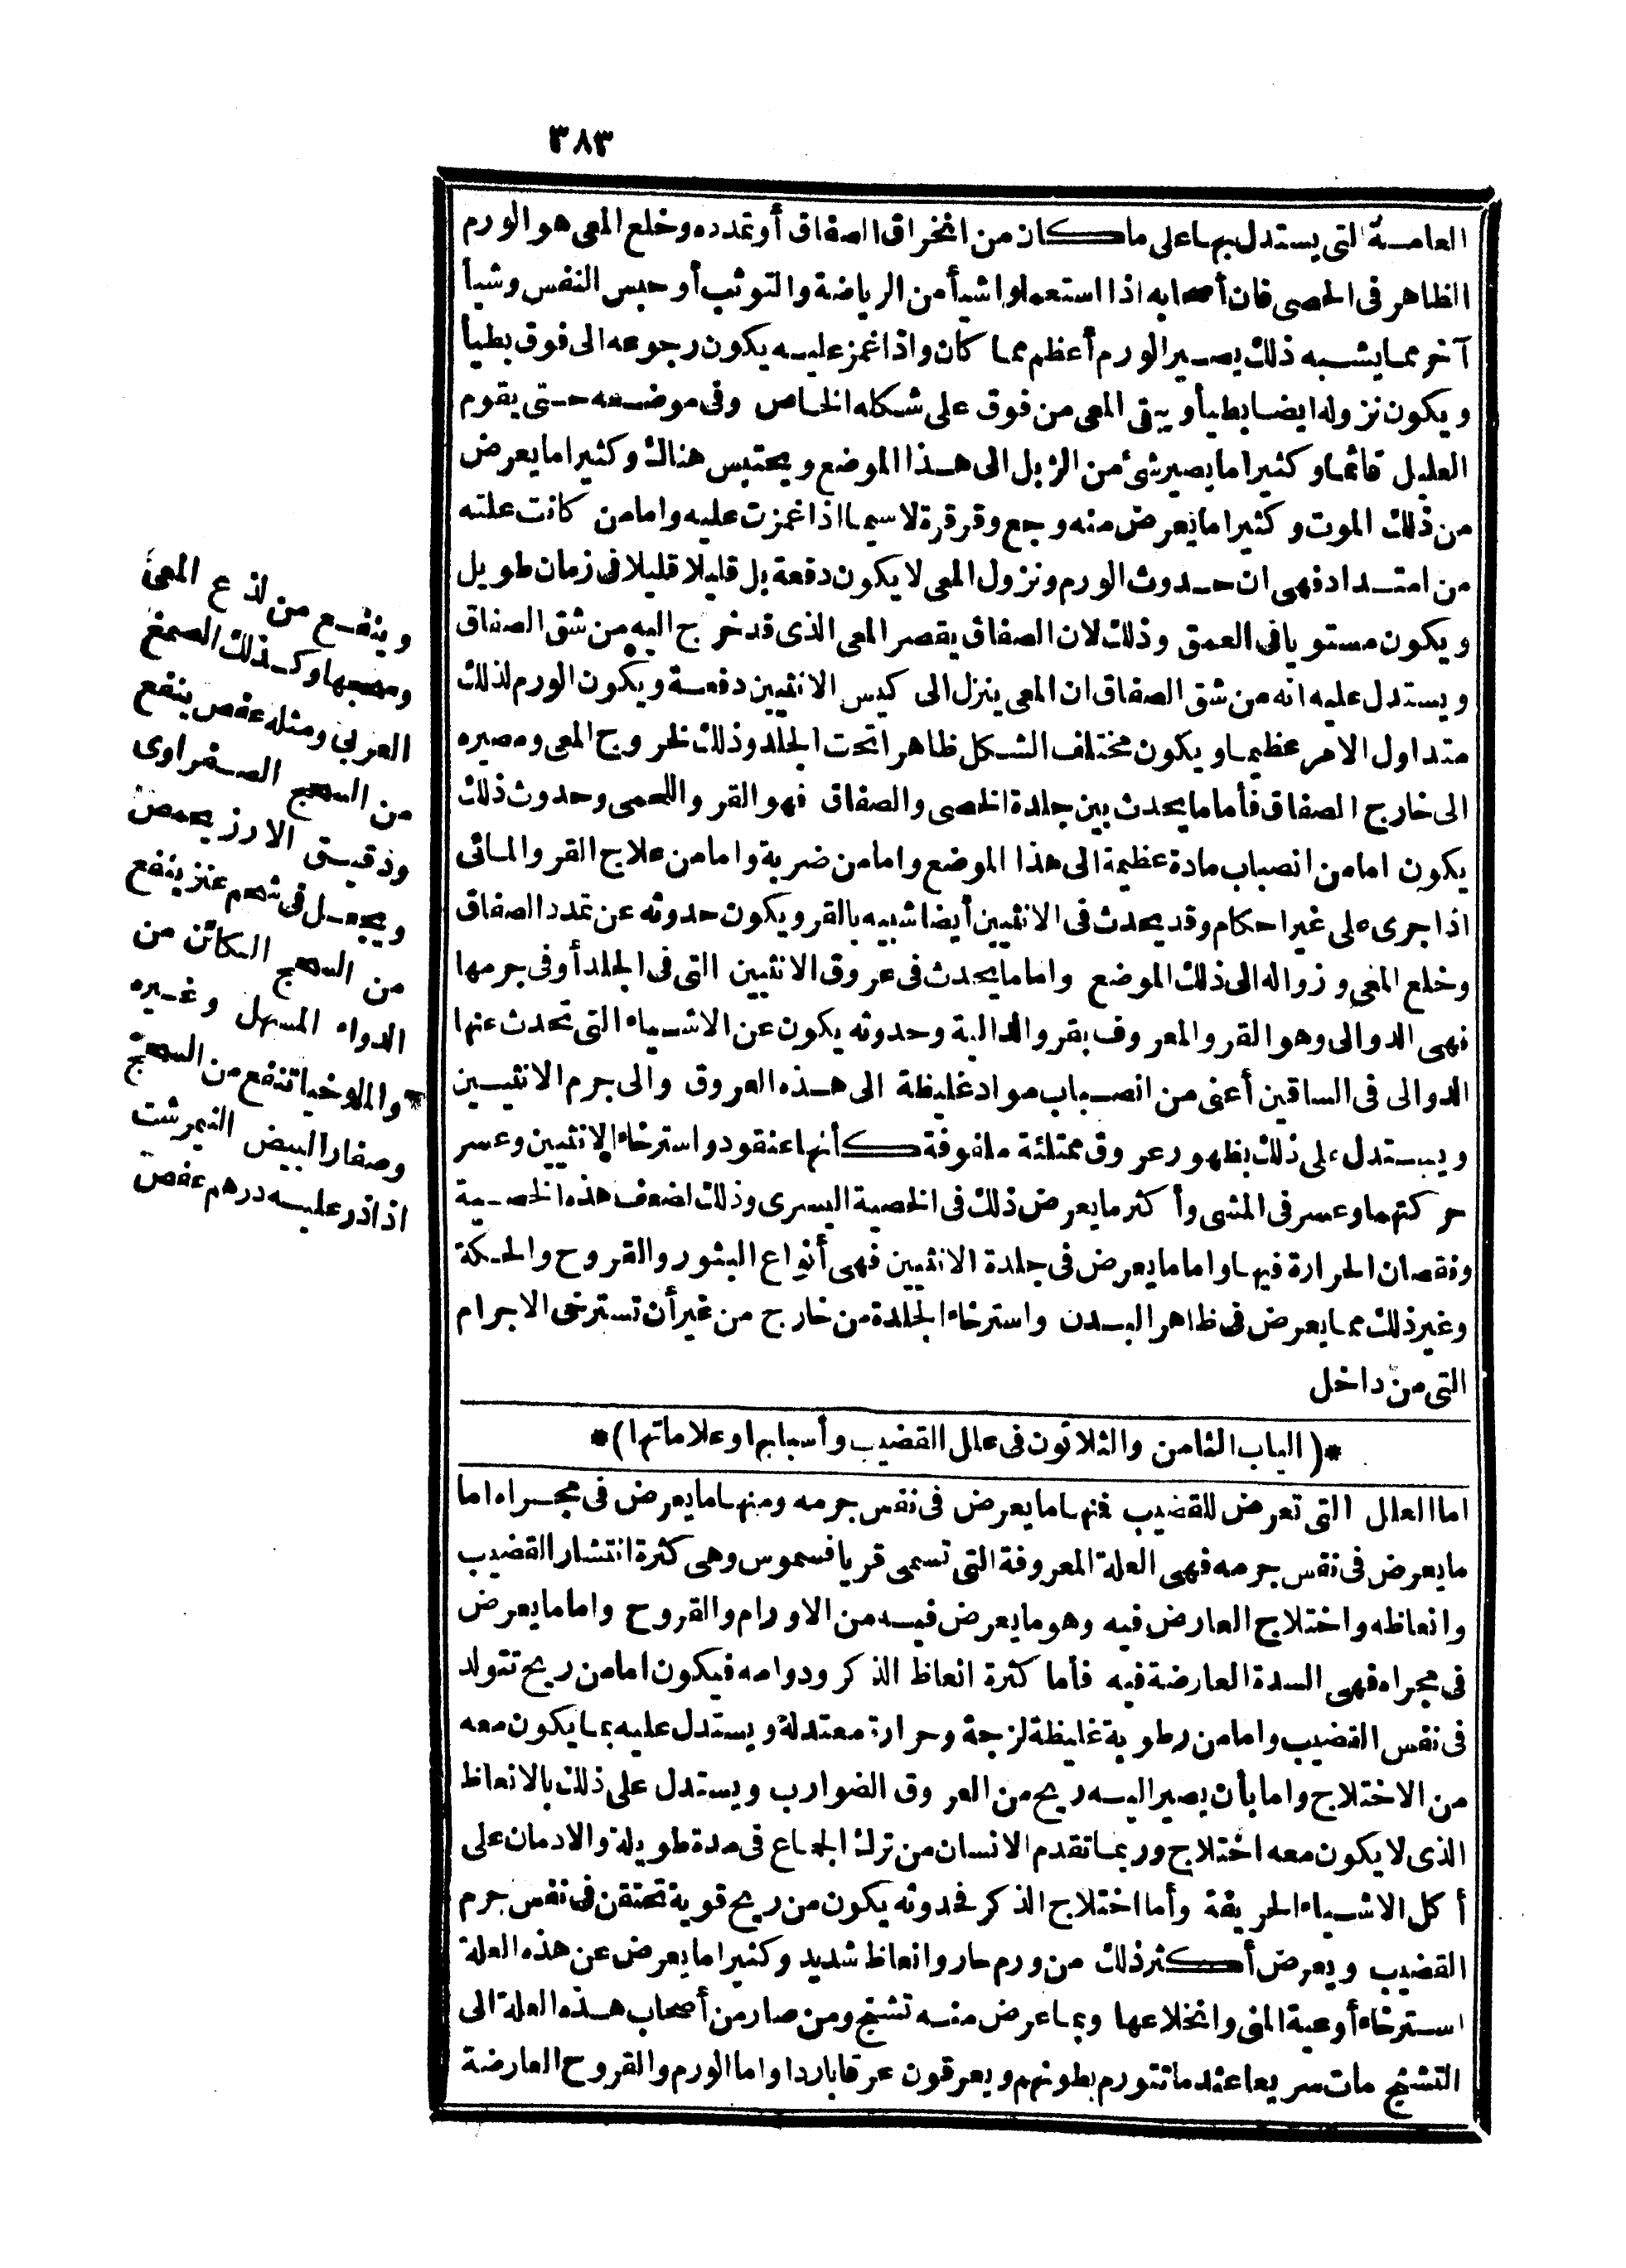 ٣٨٣
العامة التي يستدل بها على ما كان من انخراق الصفاق أو تمدده وخلع المعى هو الورم
الظاهر في الخصى فان أصحابه اذا استعملوا شيأ من الرياضة والتوثب أو حبس النفس وشيأ
آخر مما يشبه ذلك يصير الورم أعظم مما كان واذا غمز عليه يكون رجوعه الى فوق بطيأ
ويكون نزوله ايضا بطيأ ويبقى المعى من فوق على شكله الخاص وفي موضعه حتى يقوم
العليل قائما وكثيرا ما يصير شئ من الزبل الى هذا الموضع ويحتبس هناك وكثيرا ما يعرض
من ذلك الموت وكثيرا ما يعرض منه وجع وقرقرة لاسيما اذا غمزت عليه واما من كانت علته
من امتداد فهى ان حدوث الورم ونزول المعى لا يكون دفعة بل قليلا قليلا في زمان طويل
ويكون مستويا في العمق وذلك لان الصفاق يقصر المعى الذى قد خرج اليه من شق الصفاق
ويستدل عليه انه من شق الصفاق ان المعى ينزل الى كيس الانثيين دفعة ويكون الورم لذلك
متداول الامر عظيما ويكون مختلف الشكل ظاهرا تحت الجلد وذلك لخروج المعى ومصيره
الى خارج الصفاق فأما ما يحدث بين جلدة الخصى والصفاق فهو القرو اللحمى وحدوث ذلك
يكون اما من انصباب مادة عظيمة الى هذا الموضع واما من ضربة واما من علاج القرو المائى
اذا جرى على غير احكام وقد يحدث في الانثيين أيضا شبيه بالقرو ويكون حدوثه عن تمدد الصفاق
وخلع المعى وزواله الى ذلك الموضع واما ما يحدث في عروق الانثيين التى في الجلد أو في جرمها
فهى الدوالى وهو القرو المعروف بقرو الدالية وحدوثه يكون عن الاشياء التى تحدث عنها
الدوالى في الساقين أعنى من انصباب مواد غليظة الى هذه العروق والى جرم الانثيين
ويستدل على ذلك بظهور عروق ممتلئة ملفوفة كأنها عنقود واسترخاء الانثيين وعسر
حركتهما وعسر في المشى وأكثر ما يعرض ذلك في الخصية اليسرى وذلك لضعف هذه الخصية
ونقصان الحرارة فيها واما ما يعرض في جلدة الانثيين فهى أنواع البثور والقروح والحكة
وغير ذلك مما يعرض في ظاهر البدن واسترخاء الجلدة من خارج من غير أن تسترخى الاجرام
التى من داخل
*(الباب الثامن والثلاثون في علل القضيب وأسبابها وعلاماتها)*
اما العلل التى تعرض للقضيب فمنها ما يعرض في نفس جرمه ومنها ما يعرض في مجراه اما
ما يعرض في نفس جرمه فهى العلة المعروفة التى تسمى قريافسموس وهى كثرة انتشار القضيب
وانعاظه واختلاج العارض فيه وهو ما يعرض فيه من الاورام والقروح واما ما يعرض
في مجراه فهى السدة العارضة فيه فأما كثرة انعاظ الذكر ودوامه فيكون اما من ريح تتولد
في نفس القضيب واما من رطوبة غليظة لزجة وحرارة معتدلة ويستدل عليه بما يكون معه
من الاختلاج واما بأن يصير اليه ريح من العروق الضوارب ويستدل على ذلك بالانعاظ
الذى لا يكون معه اختلاج وربما تقدم الانسان من ترك الجماع في مدة طويلة والادمان على
أكل الاشياء الحريفة وأما اختلاج الذكر فحدوثه يكون من ريح قوية تحتقن في نفس جرم
القضيب ويعرض أكثر ذلك من ورم حار وانعاظ شديد وكثيرا ما يعرض عن هذه العلة
استرخاء أوعية المنى وانخلاعها وبما عرض منه تشنج ومن صار من أصحاب هذه العلة الى
التشنج مات سريعا عندما تتورم بطونهم ويعرقون عرقا باردا واما الورم والقروح العارضة
وينفع من لذع المعى
وسحجها وكذلك الصمغ
العربى ومثله عفص ينفع
من السحج الصفراوى
ودقيق الارز يحمص
ويجعل فى شحم عنز ينفع
من السحج الكائن من
الدواء المسهل وغيره
والملوخيا تنفع من السحج
وصفار البيض النيمرشت
اذا ذر عليه درهم عفص